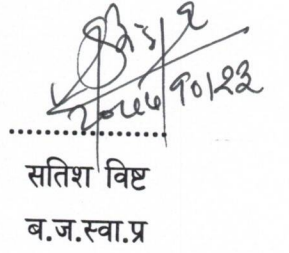 २०७७/१०/२३
सतिश विष्ट
ब.ज.स्वा.प्र